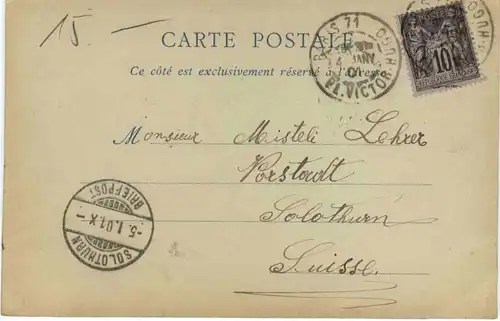 15 -
CARTE POSTALE
Ce côté est exclusivement réservé à l'adresse
PARIS 71
PL. VICTOR HUGO
JANV
01
10
REPUBLIQUE FRANÇAISE
HUGO
Monsieur Misteli Lehrer
Vorstadt
Solothurn
Suisse.
SOLOTHURN
-5.I.01.X-
BRIEFPOST